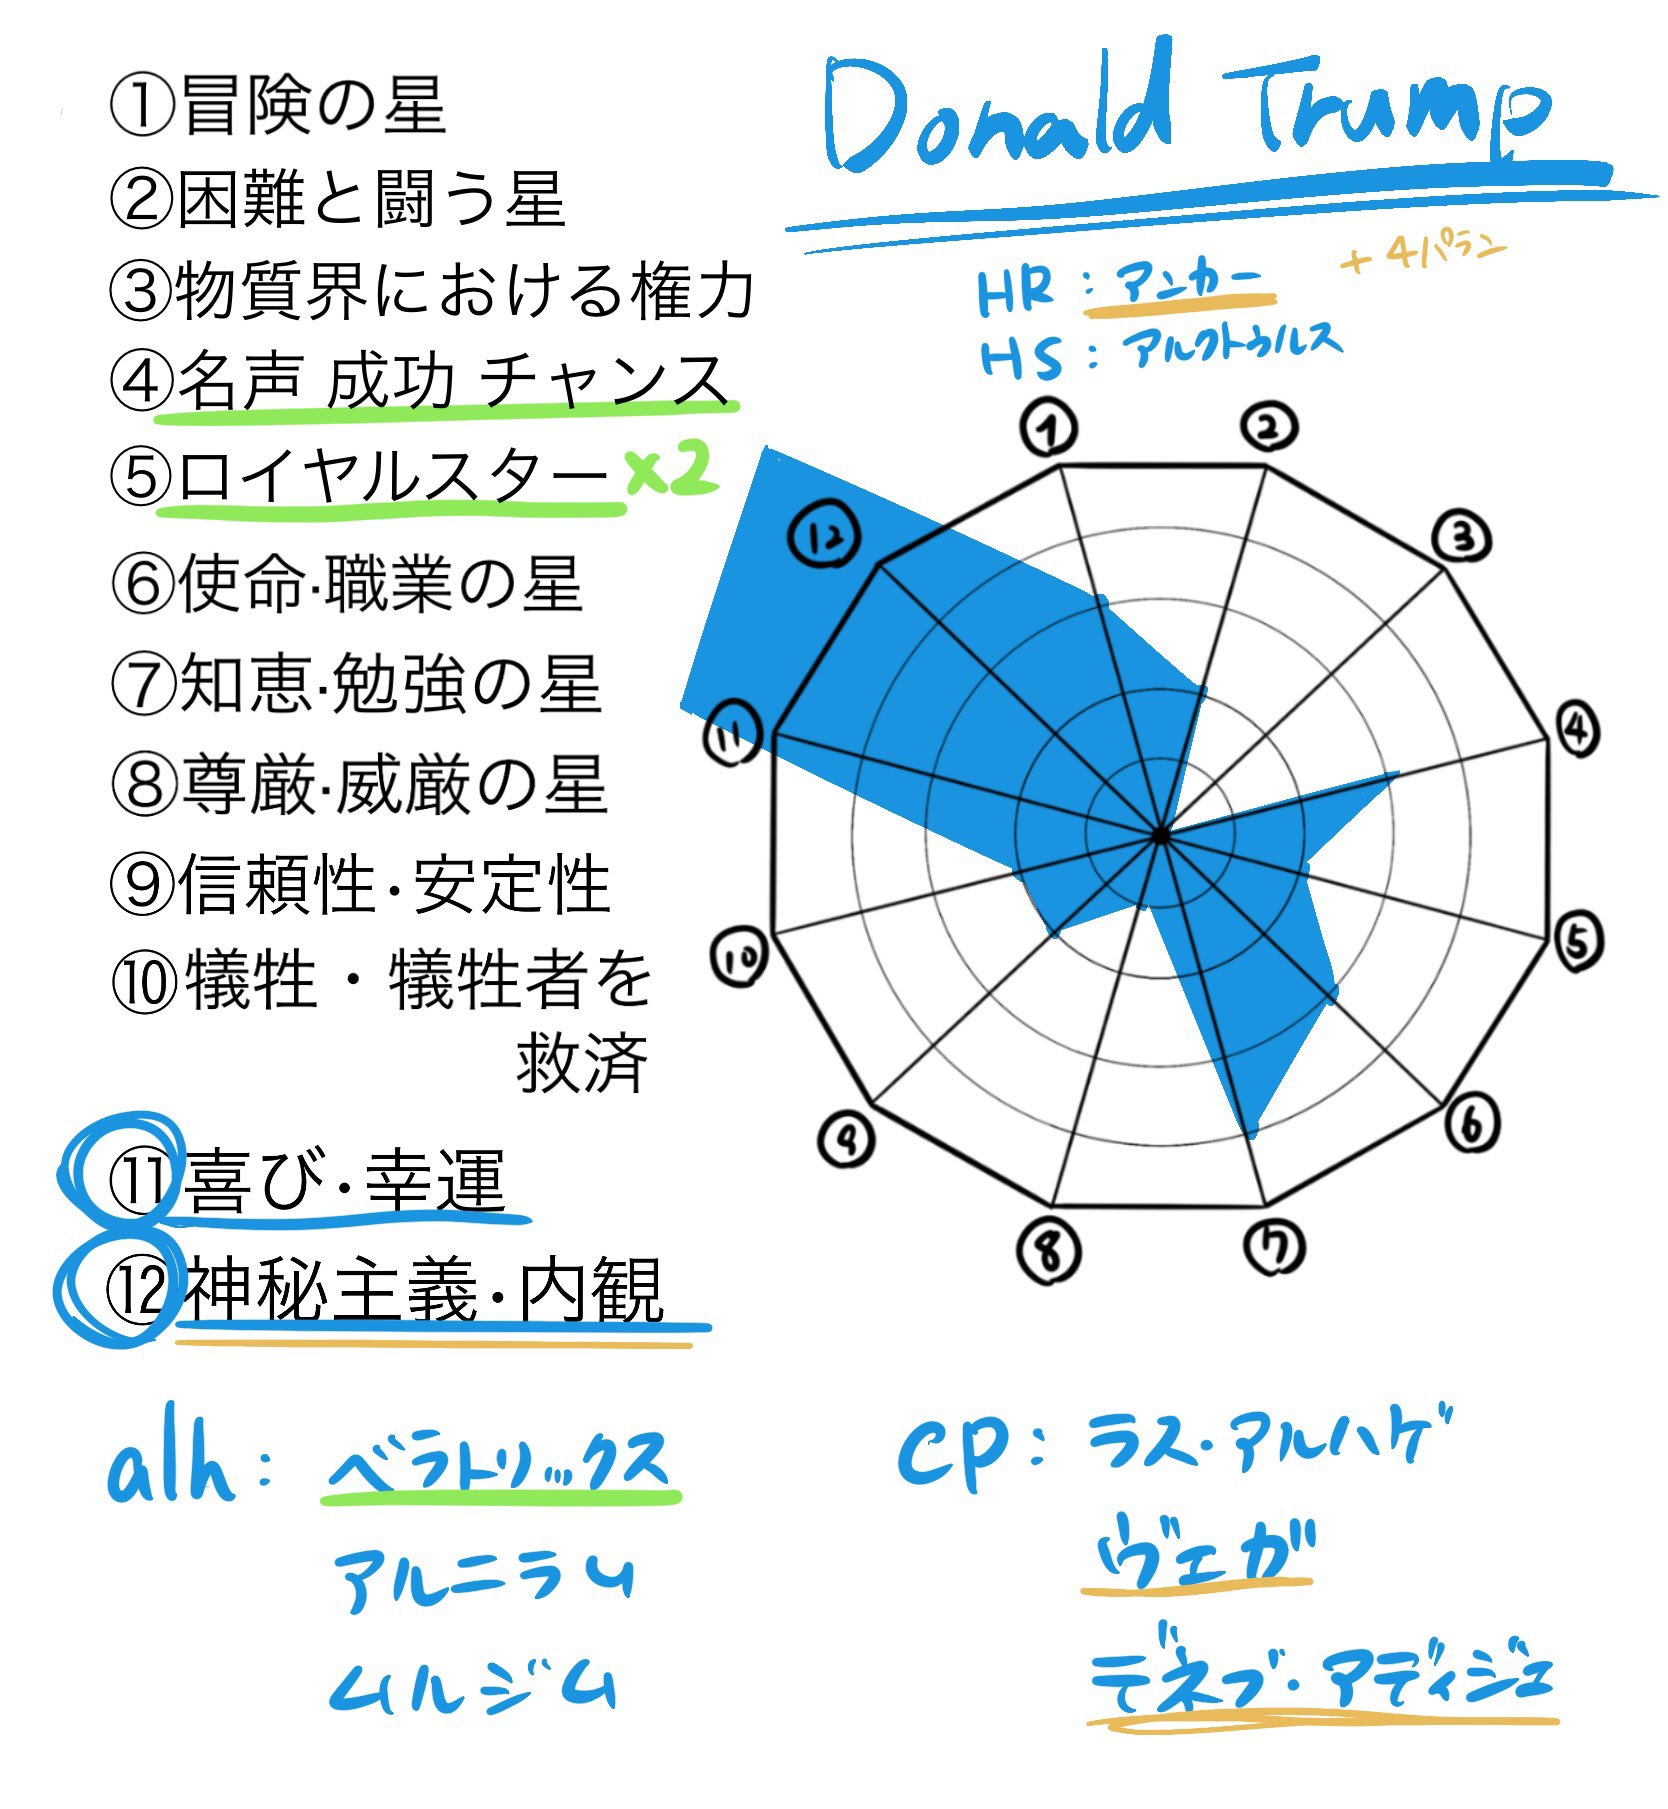 ①冒険の星
②困難と闘う星
③物質界における権力
④名声 成功 チャンス
⑤ロイヤルスター ×2
⑥使命·職業の星
⑦知恵·勉強の星
⑧尊厳·威厳の星
⑨信頼性·安定性
⑩犠牲・犠牲者を
救済
⑪喜び·幸運
⑫神秘主義·内観
Donald Trump
+4パラン
HR:アンカー
HS:アルクトゥルス
①
②
③
④
⑤
⑥
⑦
⑧
⑨
⑩
⑪
⑫
alh:ベラトリックス
アルニラム
ムルジム
CP:ラス·アルハゲ
ヴェガ
デネブ·アディジェ